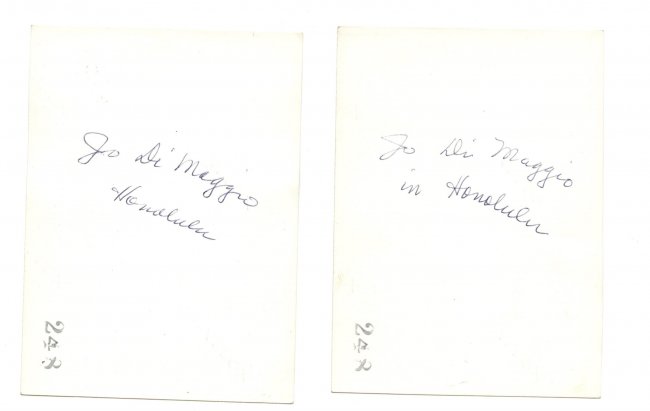 Jo Di Maggio
Honolulu
248
Jo Di Maggio
in Honolulu
248